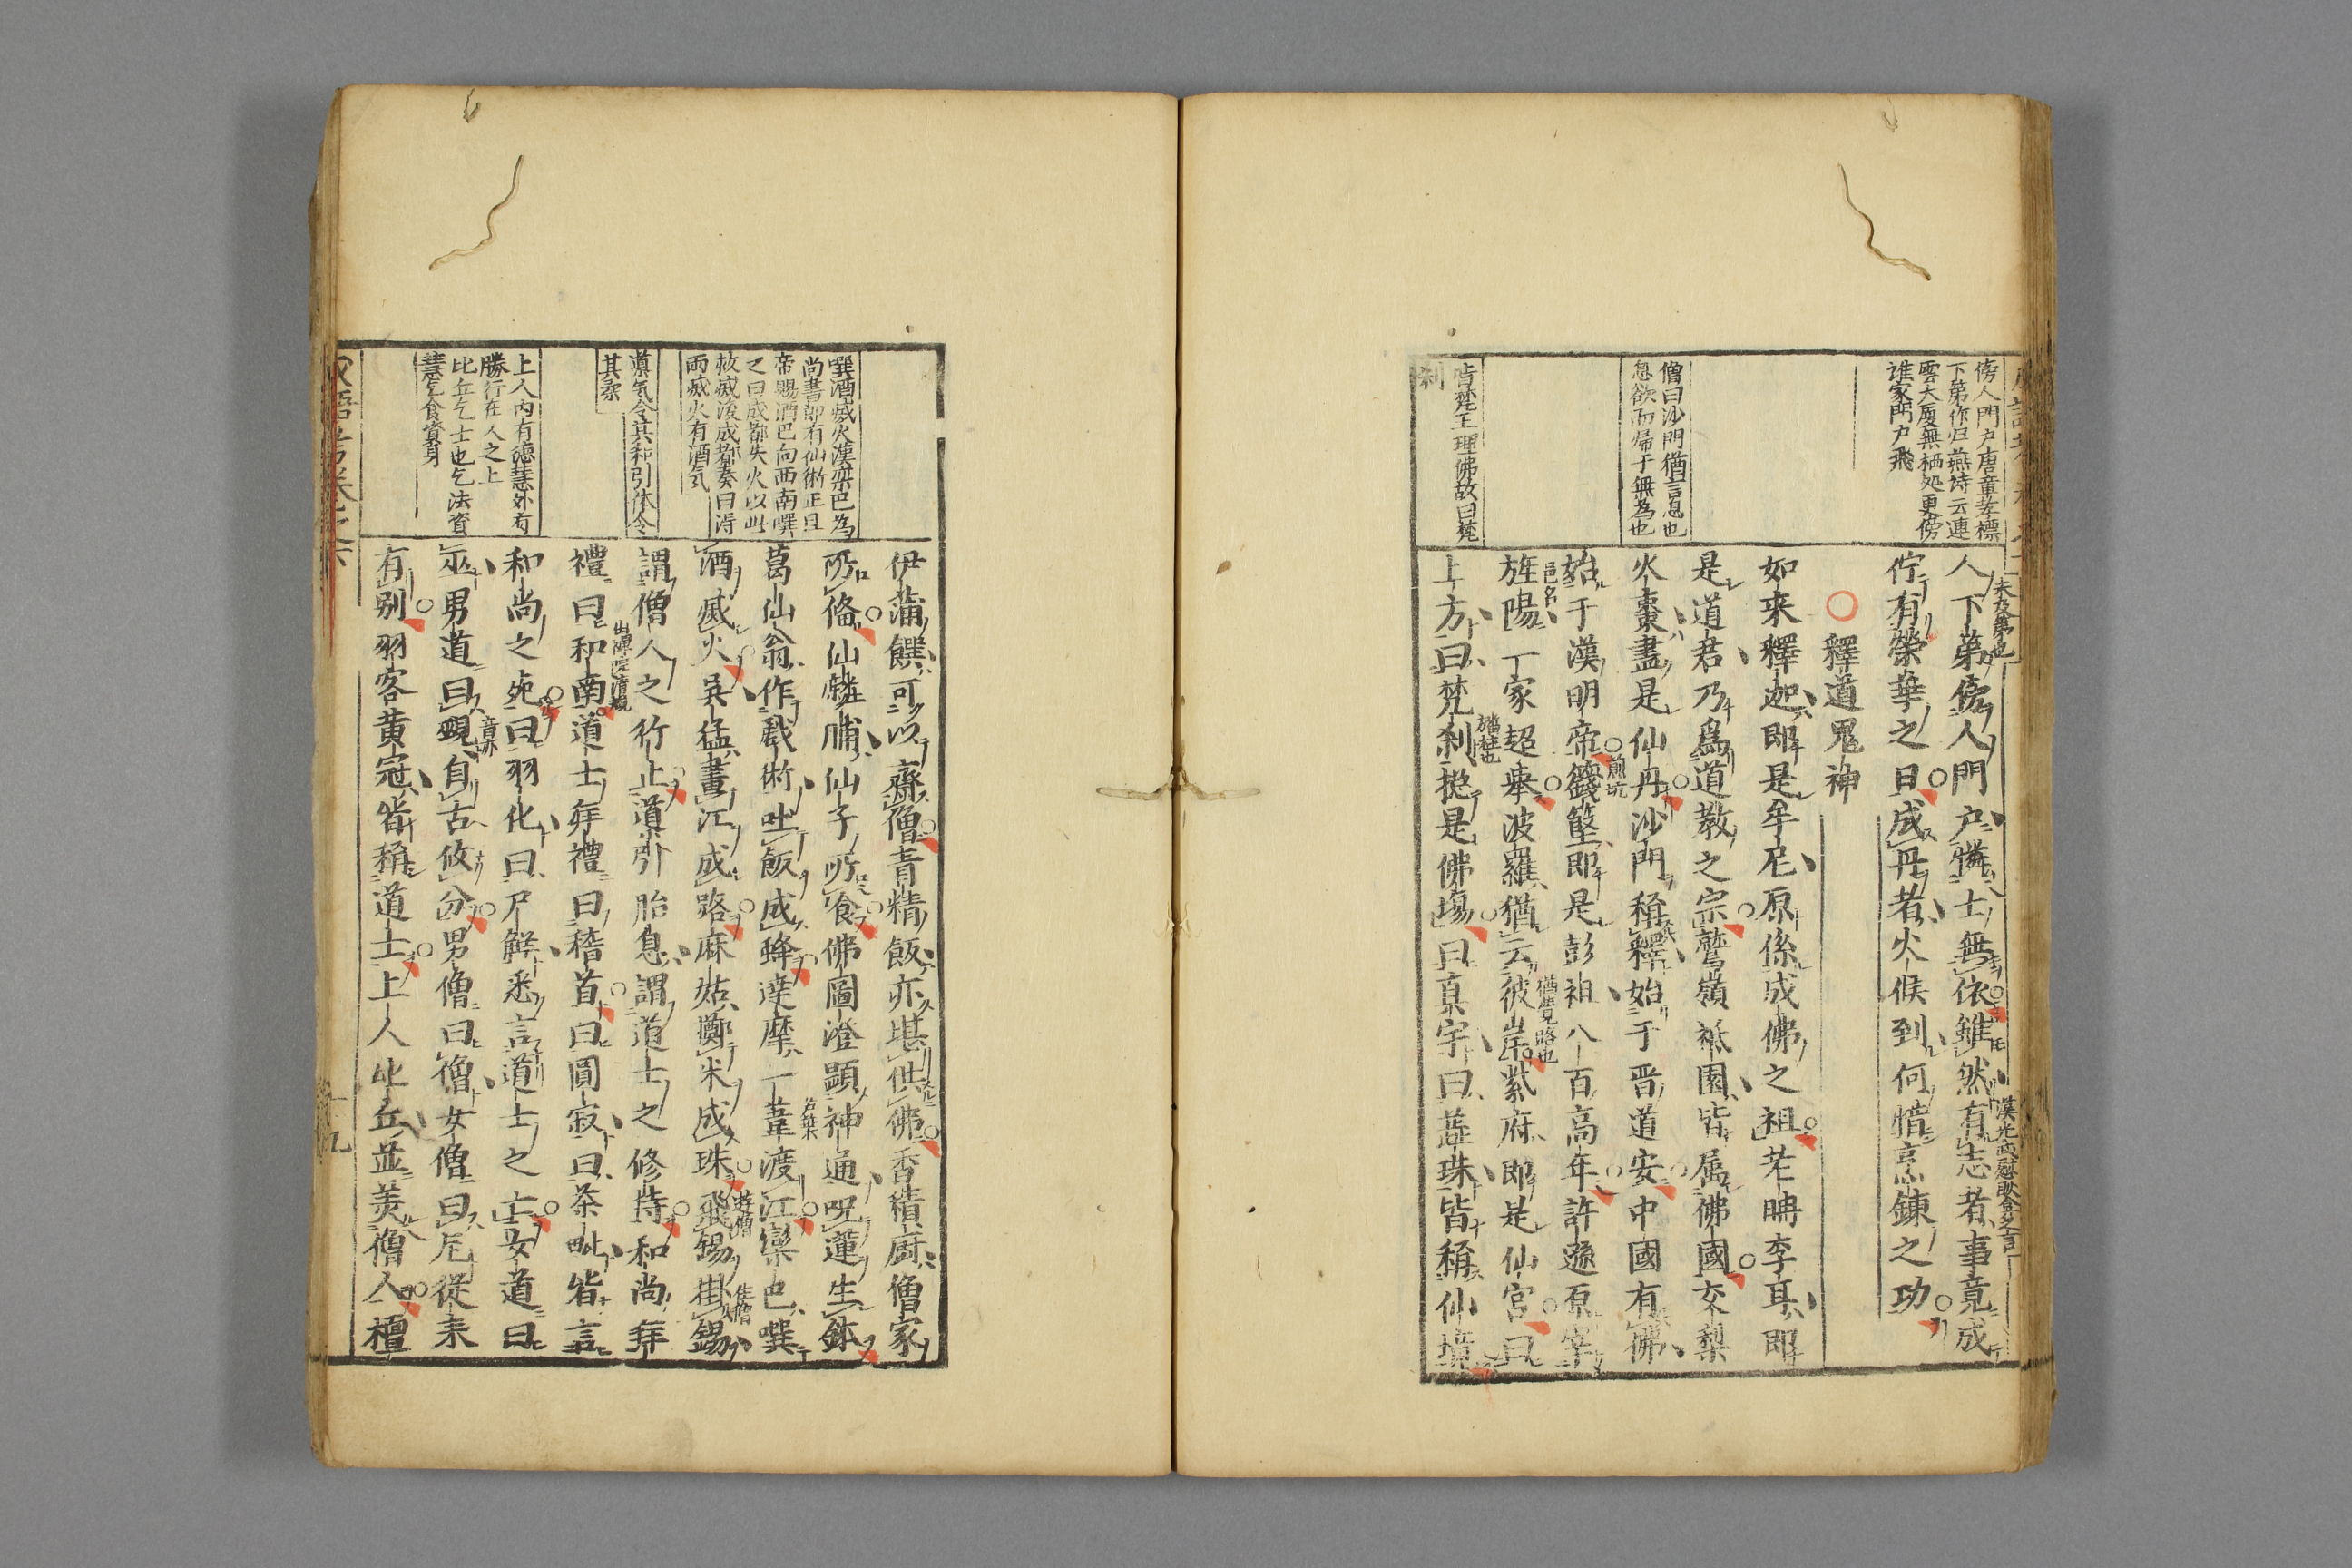 傍人門戶唐章孝標
下第作归燕诗云連
雲大厦無栖処更傍
谁家門户飛
人下第傍人門户憐士無依雖然有志者事竟成
未及第也
漢光武慰耿弇之言
佇有榮華之日成丹者火候到何惜烹鍊之功
釋道鬼神
如来釋迦即是牟尼原係成佛之祖老聃李耳即
是道君乃爲道教之宗鷲嶺祇園皆属佛國交梨
僧曰沙門猶言息也
息欲而帰于無為也
火棗盡是仙丹沙門稱釋始于晋道安中國有佛
始于漢明帝籛鏗即是彭祖八百高年許遜原宰
煎坑
旌陽一家超舉波羅猶云彼岸紫府即是仙宮曰
邑名
猶覚路也
皆梵王理佛故曰梵
刹
上方曰梵刹揔是佛塲曰真宇曰蕋珠皆稱仙境
猶柱也
伊蒲饌可以齋僧青精飯亦堪供佛香積厨僧家
噀酒滅火漢欒巴為
尚書郎有仙術正旦
帝賜酒巴向西南噀
之曰成都失火以此
救滅後成都奏曰得
雨滅火有酒気
所俻仙麟脯仙子所食佛圖澄顯神通呪蓮生鉢
葛仙翁作戲術吐飯成蜂達摩一葦渡江欒巴噀
酒滅火吳猛畫江成路麻姑擲米成珠飛錫掛錫
遊僧
住僧
導気令其和引体令
其柔
謂僧人之行止導引胎息謂道士之修持和尚拜
禮曰和南道士拜禮曰稽首曰圓寂曰茶毗皆言
出禅院清規
和尚之死曰羽化曰尸觧悉言道士之亡女道曰
上人内有徳慧外有
勝行在人之上
比丘乞士也乞法資
慧乞食資身
巫男道曰覡自古攸分男僧曰僧女僧曰尼從来
有别羽客黄冠皆稱道士上人比丘並美僧人檀
十九